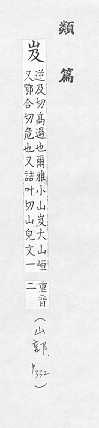 類篇
岌
逆及切高過也爾雅小山岌大山峘
又鄂合切危也又詰叶切山皃文一
重音二
(山部 P332)